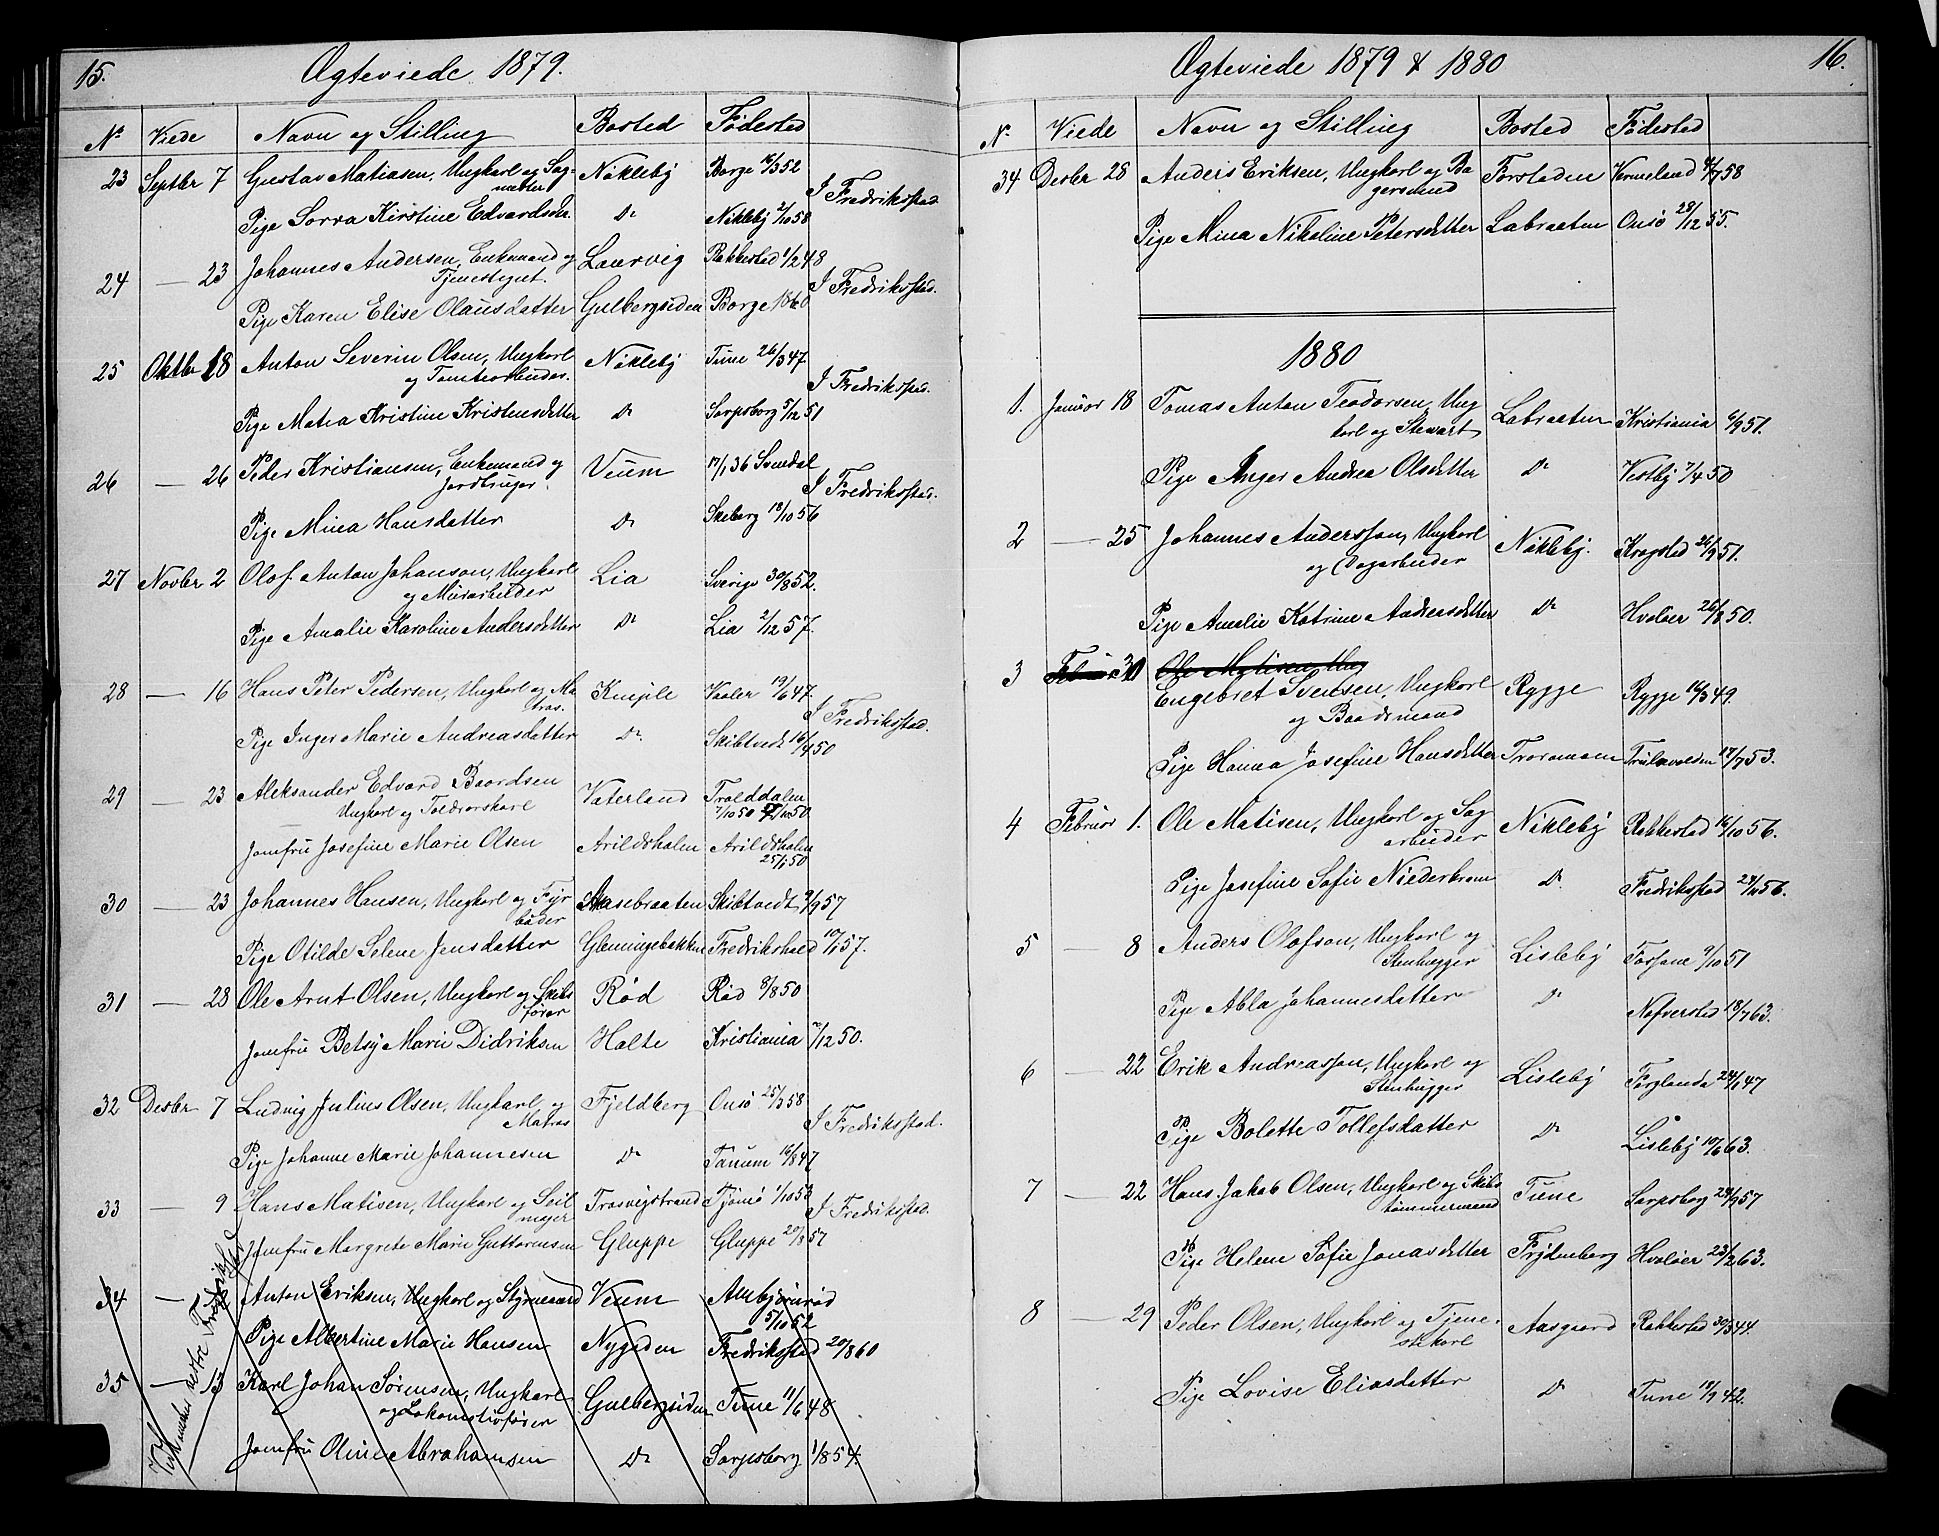 15.
Ægteviede 1879.
No Viede Navn og Stilling Bosted Fødested
23 Septbr 7 Gustav Matiasen, Ungkarl og Sag- Nøkleby Borge 16/3 52 I Fredriksstad.
mester
Pige Lorra Kirstine Edvardsdtr. Do Nøkleby 2/10 58
24 — 23 Johannes Andersen, Enkemand og Laurvig Rakkestad 1/2 48 I Fredriksstad.
Tjenestegut.
Pige Karen Elise Olausdatter Gulbergsiden Borge 1860
25 Oktbr 18 Anton Severin Olsen, Ungkarl Nøkleby Tune 26/3 47 I Fredriksstad.
og Tomtearbeider.
Pige Matea Kristine Kristensdatter Do Sarpsborg 5/12 51
26 — 26 Peder Kristiansen, Enkemand og Veum 17/1 36 I Fredriksstad.
Jordbruger.
Pige Mina Hansdatter Do Skeberg 18/10 56
27 Novbr 2 Olof Anton Johanson, Ungkarl Lia Sverige 30/8 52.
og Murarbeider
Pige Amalie Karoline Andersdatter Do Lia 2/12 57.
28 — 16 Hans Peter Pedersen, Ungkarl og Ma Kniple Vaaler 19/6 47. I Fredriksstad.
tros.
Pige Inger Marie Andreasdatter Do. Skibtvedt 16/4 50
29 — 23 Aleksander Edvard Baardsen Vaterland Trolddalen
Ungkarl og Toldrorskarl 7/10 50
Jomfru Josefine Marie Olsen Arildshalen Arildshalen
25/1 50
30 — 23 Johannes Hansen, Ungkarl og Fyr Aasebraaten Skibtvedt 9/9 57
bøder
Pige Otilde Selene Jensdatter Glemingebakken Fredrikshald 10/1 57.
31 — 28 Ole Arnt Olsen, Ungkarl og Skibs Rød Rød 8/8 50
fører
Jomfru Betsy Marie Didriksen Holte Kristiania 2/12 50.
32 Desbr 7 Ludvig Julius Olsen, Ungkarl og Fjeldberg Onsø 25/3 58 I Fredriksstad.
Matros
Pige Johanne Marie Johannesen Do Tanum 16/8 47
33 — 9 Hans Matisen, Ungkarl og Seil Trosvigstrand Tjømø 1/10 53 I Fredriksstad.
mager
Jomfru Margrete Marie Guttormsen Gluppe Gluppe 20/8 57
34 — Anton Eriksen, Ungkarl og Styrmand Veum Ambjørnrød
5/10 52
Pige Albertine Marie Hansen Nygaden Fredrikstad 20/8 60
35 — 13 Karl Johan Sørensen, Ungkarl Gulbergsiden Tune 11/6 48
og Lokomotivfører
Jomfru Oline Abrahamsen Do Sarpsborg 1/8 54.
16.
Ægteviede 1879 & 1880
No. Viede Navn og Stilling Bosted Fødested
34 Desbr 28 Anders Eriksen, Ungkarl og Ba Forstaden Vermeland 4/7 58
gersvend
Pige Mina Nikoline Petersdatter Labraaten Onsø 28/12 55.
1880
1. Januar 18 Tomas Anton Teodorsen, Ung Labraaten Kristiania 6/9 51.
karl og Stewart
Pige Inger Andrea Olsdatter Do Vestby 7/4 50
2 — 25 Johannes Andersson, Ungkarl Nøkleby. Krogstad 26/9 51.
og Dagarbeider
Pige Amalie Katrine Andersdatter Do Hvaløer 26/8 50.
3 Ole Matisen, Ung
Engebret Svensen, Ungkarl Rygge Rygge 16/3 49.
og Baadsmand
Pige Hanna Josefine Hansdatter 17/7 53.
4 Februar 1. Ole Matisen, Ungkarl og Sag Nøkleby Rakkestad 16/10 56.
arbeider
Pige Josefine Sofie Do. Fredriksstad 56.
5 — 8 Anders Olofson, Ungkarl og Lisleby 9/10 51
Stenhugger
Pige Abla Johannesdatter Do Nafverstad 18/7 63.
6 — 22 Erik Andreasson, Ungkarl og Lisleby Forglanda 24/1 47
Stenhugger
Pige Bolette Tollefsdatter Do Lisleby 10/6 63.
7 — 22 Hans Jakob Olsen, Ungkarl og Skibs Tune Sarpsborg 29/9 57
tømmermand
Pige Helene Sofie Jonasdatter Frydenberg Hvaløer 23/2 63.
8 — 29 Peder Olsen, Ungkarl og Tjene- Aasgaard Rakkestad 30/3 44.
stekarl
Pige Lovise Eliasdatter Do Tune 18/9 42.